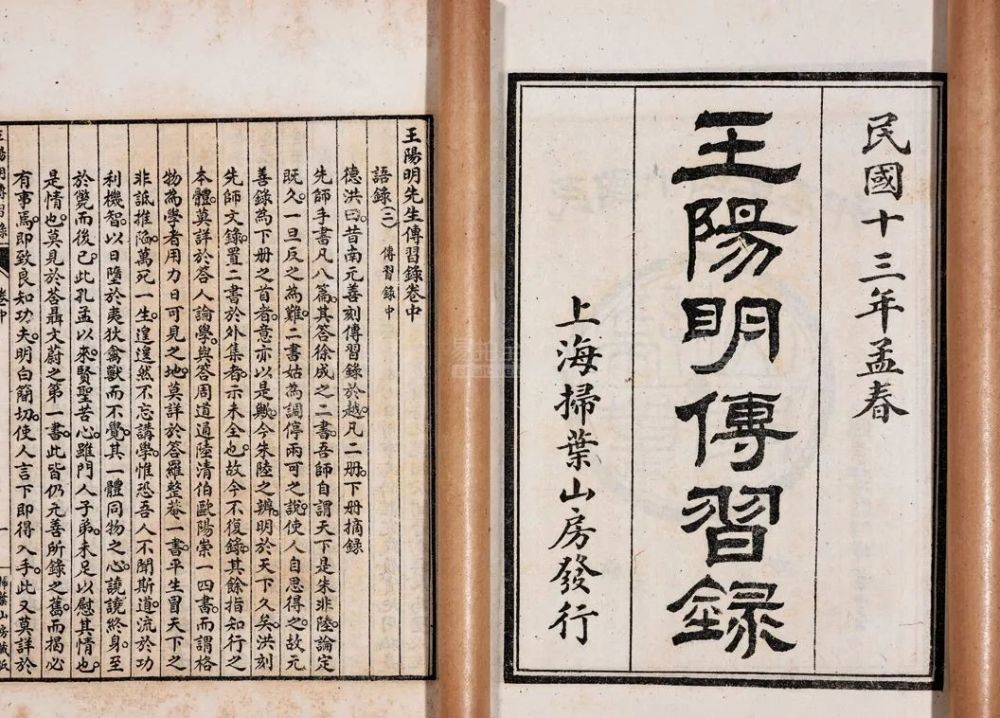 民國十三年孟春
王陽明傳習錄
上海掃葉山房發行
王陽明先生傳習錄卷中
語錄(二) 傳習錄中
德洪曰。昔南元善刻傳習錄於越。凡二册。下册摘錄
先師手書凡八篇。其答徐成之二書。吾師自謂天下是朱非陸。論定
既久。一旦反之為難。二書姑為調停兩可之說。使人自思得之。故元
善錄為下册之首者。意亦以是歟。今朱陸之辨。明於天下久矣。洪刻
先師文錄。置二書於外集者。示未全也。故今不復錄。其餘指知行之
本體。莫詳於答人論學。與答周道通陸清伯歐陽崇一四書。而謂格
物為學者用力日可見之地。莫詳於答羅整菴一書。平生冒天下之
非詆推陷。萬死一生。遑遑然不忘講學。惟恐吾人不聞斯道。流於功
利機智。以日墮於夷狄禽獸而不覺。其一體同物之心。譊譊終身。至
於斃而後已。此孔孟以來賢聖苦心。雖門人子弟。未足以慰其情也。
是情也。莫見於荅聶文蔚之第一書。此皆仍元善所錄之舊。而揭必
有事焉即致良知功夫。明白簡切。使人言下即得入手。此又莫詳於
王陽明傳習錄 卷中 一 掃葉山房藏版